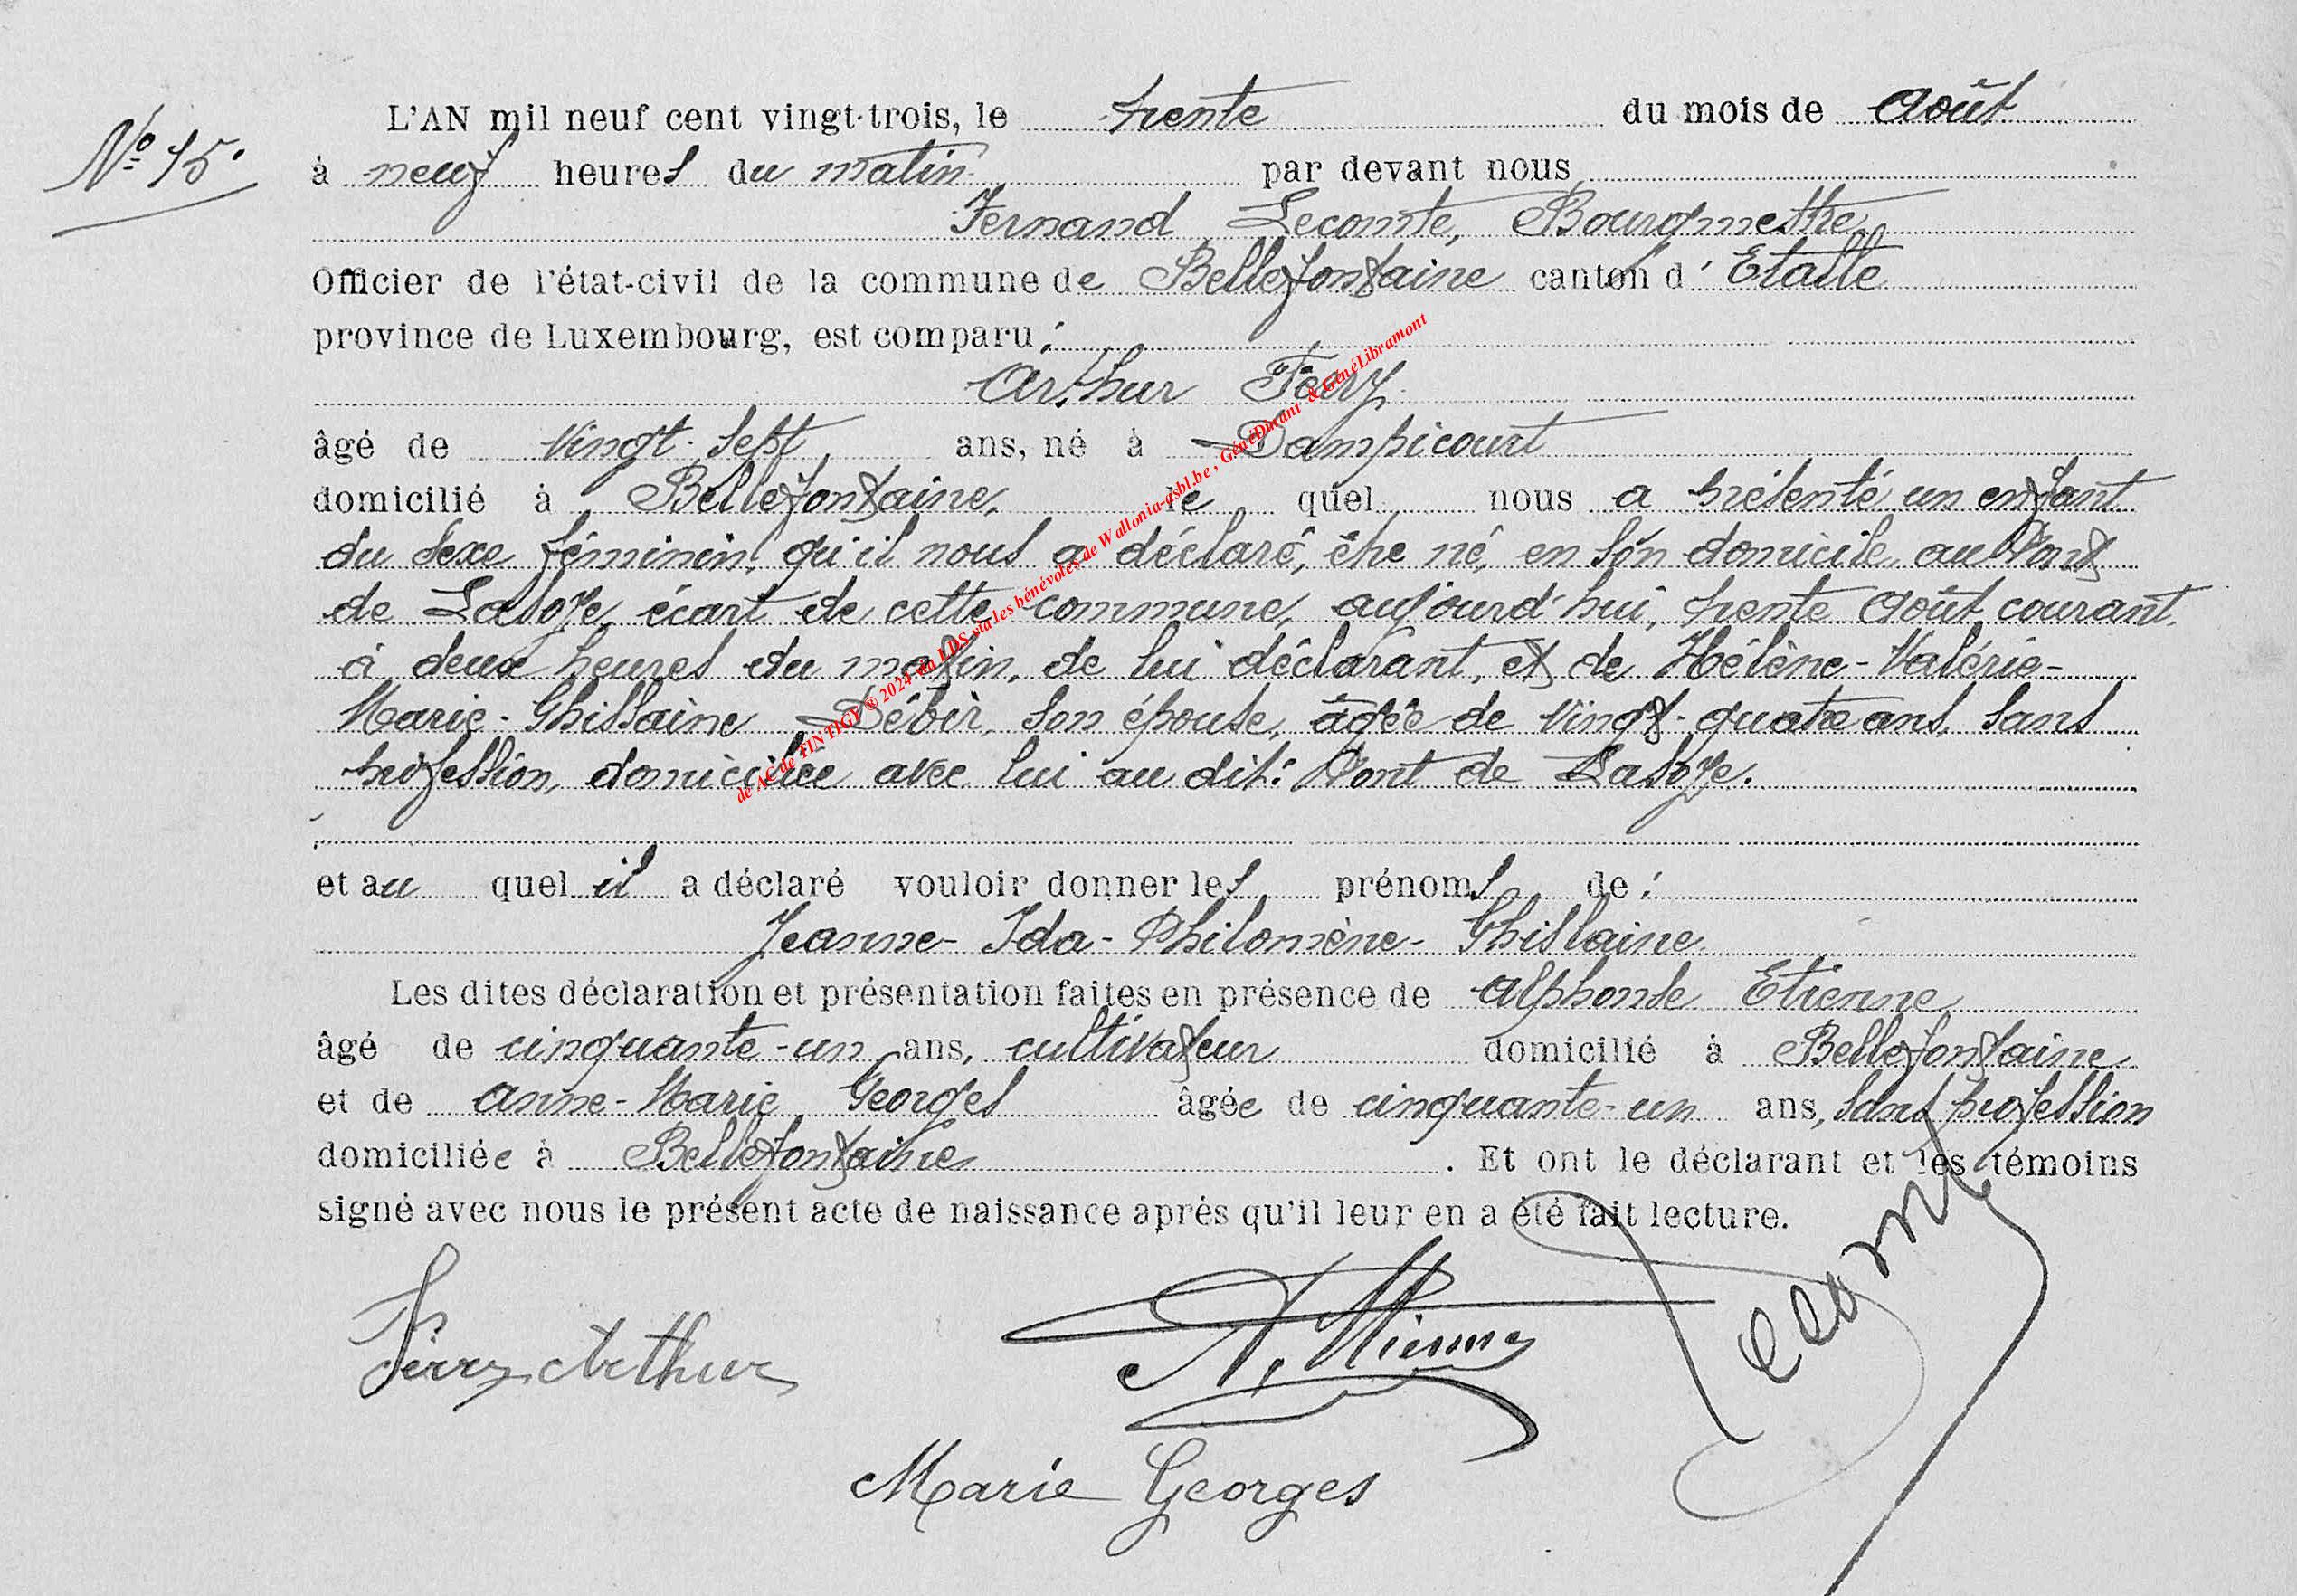 L'AN mil neuf cent vingt-trois, le trente du mois de Août
N° 15.
à neuf heures du matin par devant nous
Fernand Lecomte, Bourgmestre
Officier de l'état-civil de la commune de Bellefontaine canton d'Etalle
province de Luxembourg, est comparu :
Arthur
âgé de vingt-sept ans, né à Dampicourt
domicilié à Bellefontaine, le quel nous a présenté un enfant
du sexe féminin, qu'il nous a déclaré, être né, en son domicile au Pont
de Lasoye, écart de cette commune, aujourd'hui, trente Août courant,
à deux heures du matin, de lui déclarant, et de Hélène-Valérie-
Marie-Ghislaine Débir, son épouse, âgée de vingt-quatre ans, sans
profession, domiciliée avec lui au dit: Pont de Lasoye.
et au quel il a déclaré vouloir donner les prénoms de :
Jeanne-Ida-Philomène-Ghislaine
Les dites déclaration et présentation faites en présence de Alphonse Etienne
âgé de cinquante-un ans, cultivateur domicilié à Bellefontaine
et de Anne-Marie Georges âgée de cinquante-un ans, sans profession
domiciliée à Bellefontaine. Et ont le déclarant et les témoins
signé avec nous le présent acte de naissance après qu'il leur en a été fait lecture.
Arthur
A. Etienne
Lecomte
Marie Georges
de AC de TINTIGY ® 2024 du LDS via les bénévoles de Wallonia-asbl.be, GénéDurant & GénéLibramont